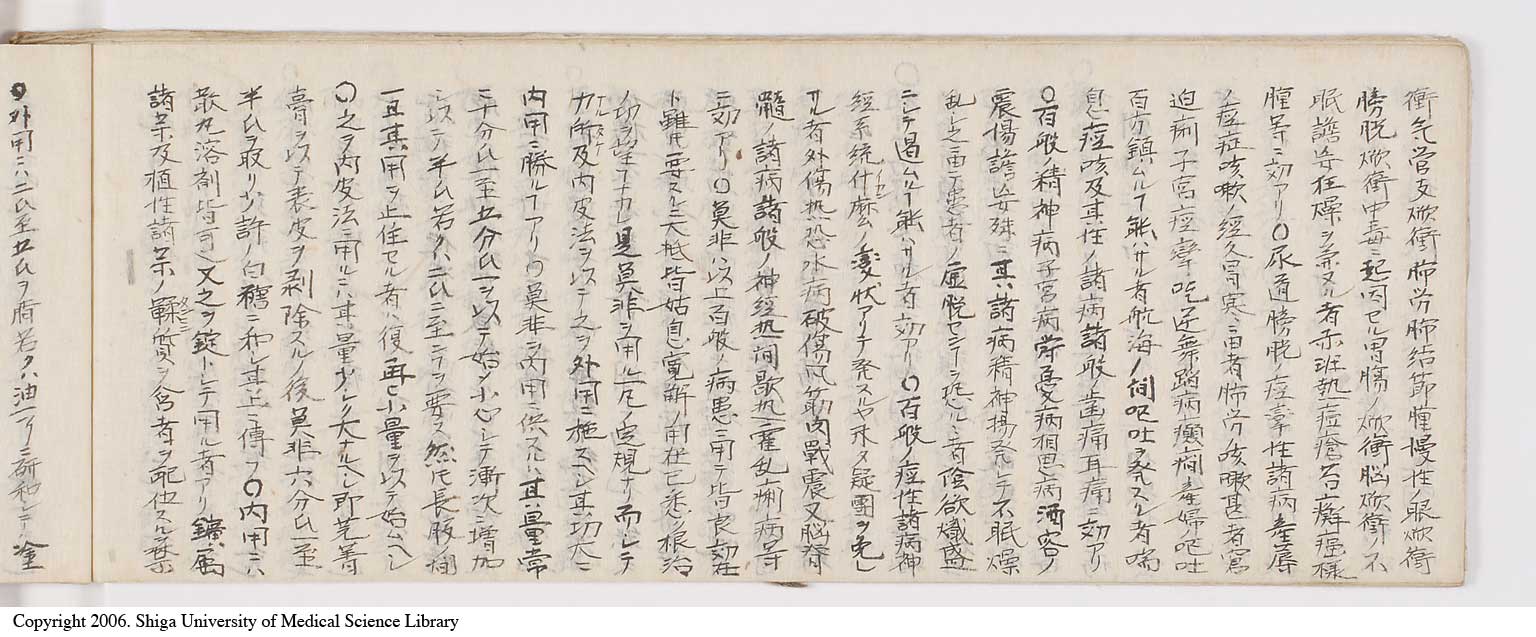 衝気管支焮衝肺労肺結節腫慢性ノ眼焮衝
膀胱焮衝中毒ニ起因セル胃腸ノ焮衝脳焮衝不
眠譫妄狂燥ヲ兼ヌル者赤斑熱痘瘡石癬癌様
腫等ニ効アリ〇尿道膀胱ノ痙攣性諸病産蓐
ノ痙症咳嗽ノ経久冒寒ニ由者肺労咳嗽甚者窘
迫痢子宮痙攣吃逆舞踏病癲癇産婦ノ呕吐
百方鎮ムルヿ能ハサル者航海ノ間呕吐ヲ発スル者喘
息痙咳及其性ノ諸病諸般ノ歯痛耳痛ニ効アリ
〇百般ノ精神病子宮病労憂病相思病酒客ノ
震慯譫妄殊ニ其諸病精神揚発シテ不眠燥
乱シ之ニ由テ患者ノ虚脱セシヿヲ恐ルヽ者陰欲熾盛
ニシテ遏ムルヿ能ハサル者効アリ〇百般ノ痙性諸病神
経系統什麼ノ変状アリテ発スルヤ未タ疑団ヲ免レ
サル者外傷熱恐水病破傷風筋肉戰震又脳脊
髄ノ諸病諸般ノ神経熱間歇熱霍乱痢病等
ニ効アリ〇莫非ハ以上百般ノ病患ニ用テ皆良効在
ト雖𪜈要スルニ大抵皆姑息寛解ノ用在已悉ノ根治
ノ功ヲ望ヿナカレ是莫非ヲ用ル𠃋ノ定規ナリ而シテ
カ所及内皮法ヲ以テ之ヲ外用ニ施スヘシ其功大ニ
内用ニ勝ルヿアリ〇莫非ヲ内用ニ供スルハ其量常
ニ十分氏一至五分氏一ヲ以テ始メ小心シテ漸次ニ増加
シ以テ半氏若クハ二氏ニ至ニテヲ要ス然𪜈長服ノ間
一旦其用ヲ止住セル者ハ復再ヒ小量ヲ以テ始ムヘシ
〇之ヲ内皮法ニ用ルニハ其量少シク大ナルヘシ即芫菁
膏ヲ以テ表皮ヲ剥除スルノ後莫非六分氏一至
半氏ヲ取リ少許ノ白糖ニ和シ其上ニ傅フ〇内用ニハ
散丸溶剤皆可之又之ヲ錠トシテ用ル者アリ鑛属
諸薬及植性諸薬ノ鞣質ヲ含者ヲ配伍スルヿ禁
〇外用ニハ二氏至五氏ヲ脂若クハ油一ヲニ研和シテ塗